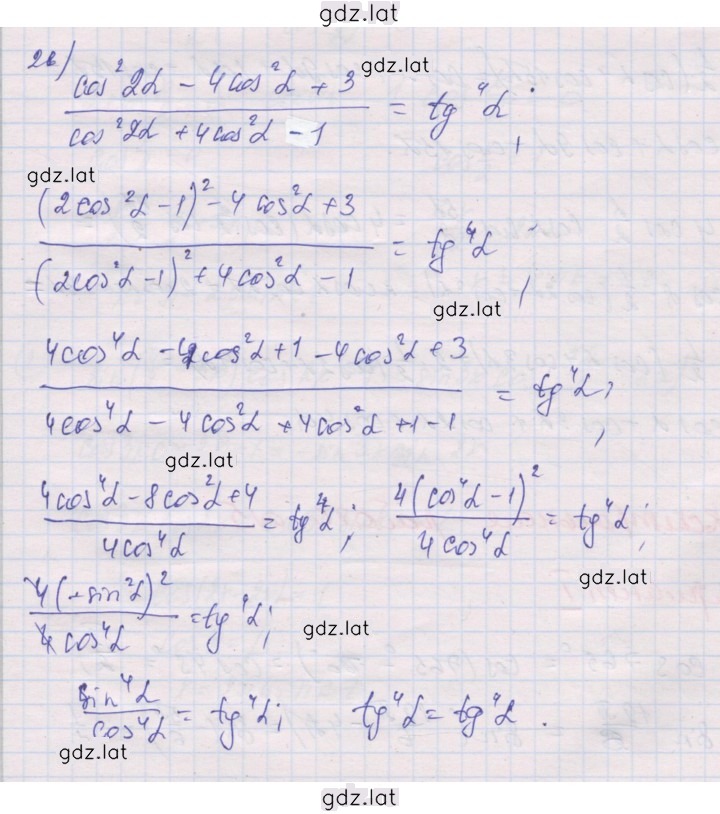 gdz.lat
2в)
gdz.lat
cos²2α − 4cos²α + 3 / cos²2α + 4cos²α − 1 = tg⁴α;
gdz.lat
(2cos²α − 1)² − 4cos²α + 3 / (2cos²α − 1)² + 4cos²α − 1 = tg⁴α;
gdz.lat
4cos⁴α − 4cos²α + 1 − 4cos²α + 3 / 4cos⁴α − 4cos²α + 4cos²α + 1 − 1 = tg⁴α;
gdz.lat
4cos⁴α − 8cos²α + 4 / 4cos⁴α = tg⁴α; 4(cos²α − 1)² / 4cos⁴α = tg⁴α;
gdz.lat
4(−sin²α)² / 4cos⁴α = tg⁴α;
gdz.lat
sin⁴α / cos⁴α = tg⁴α; tg⁴α = tg⁴α.
gdz.lat
gdz.lat